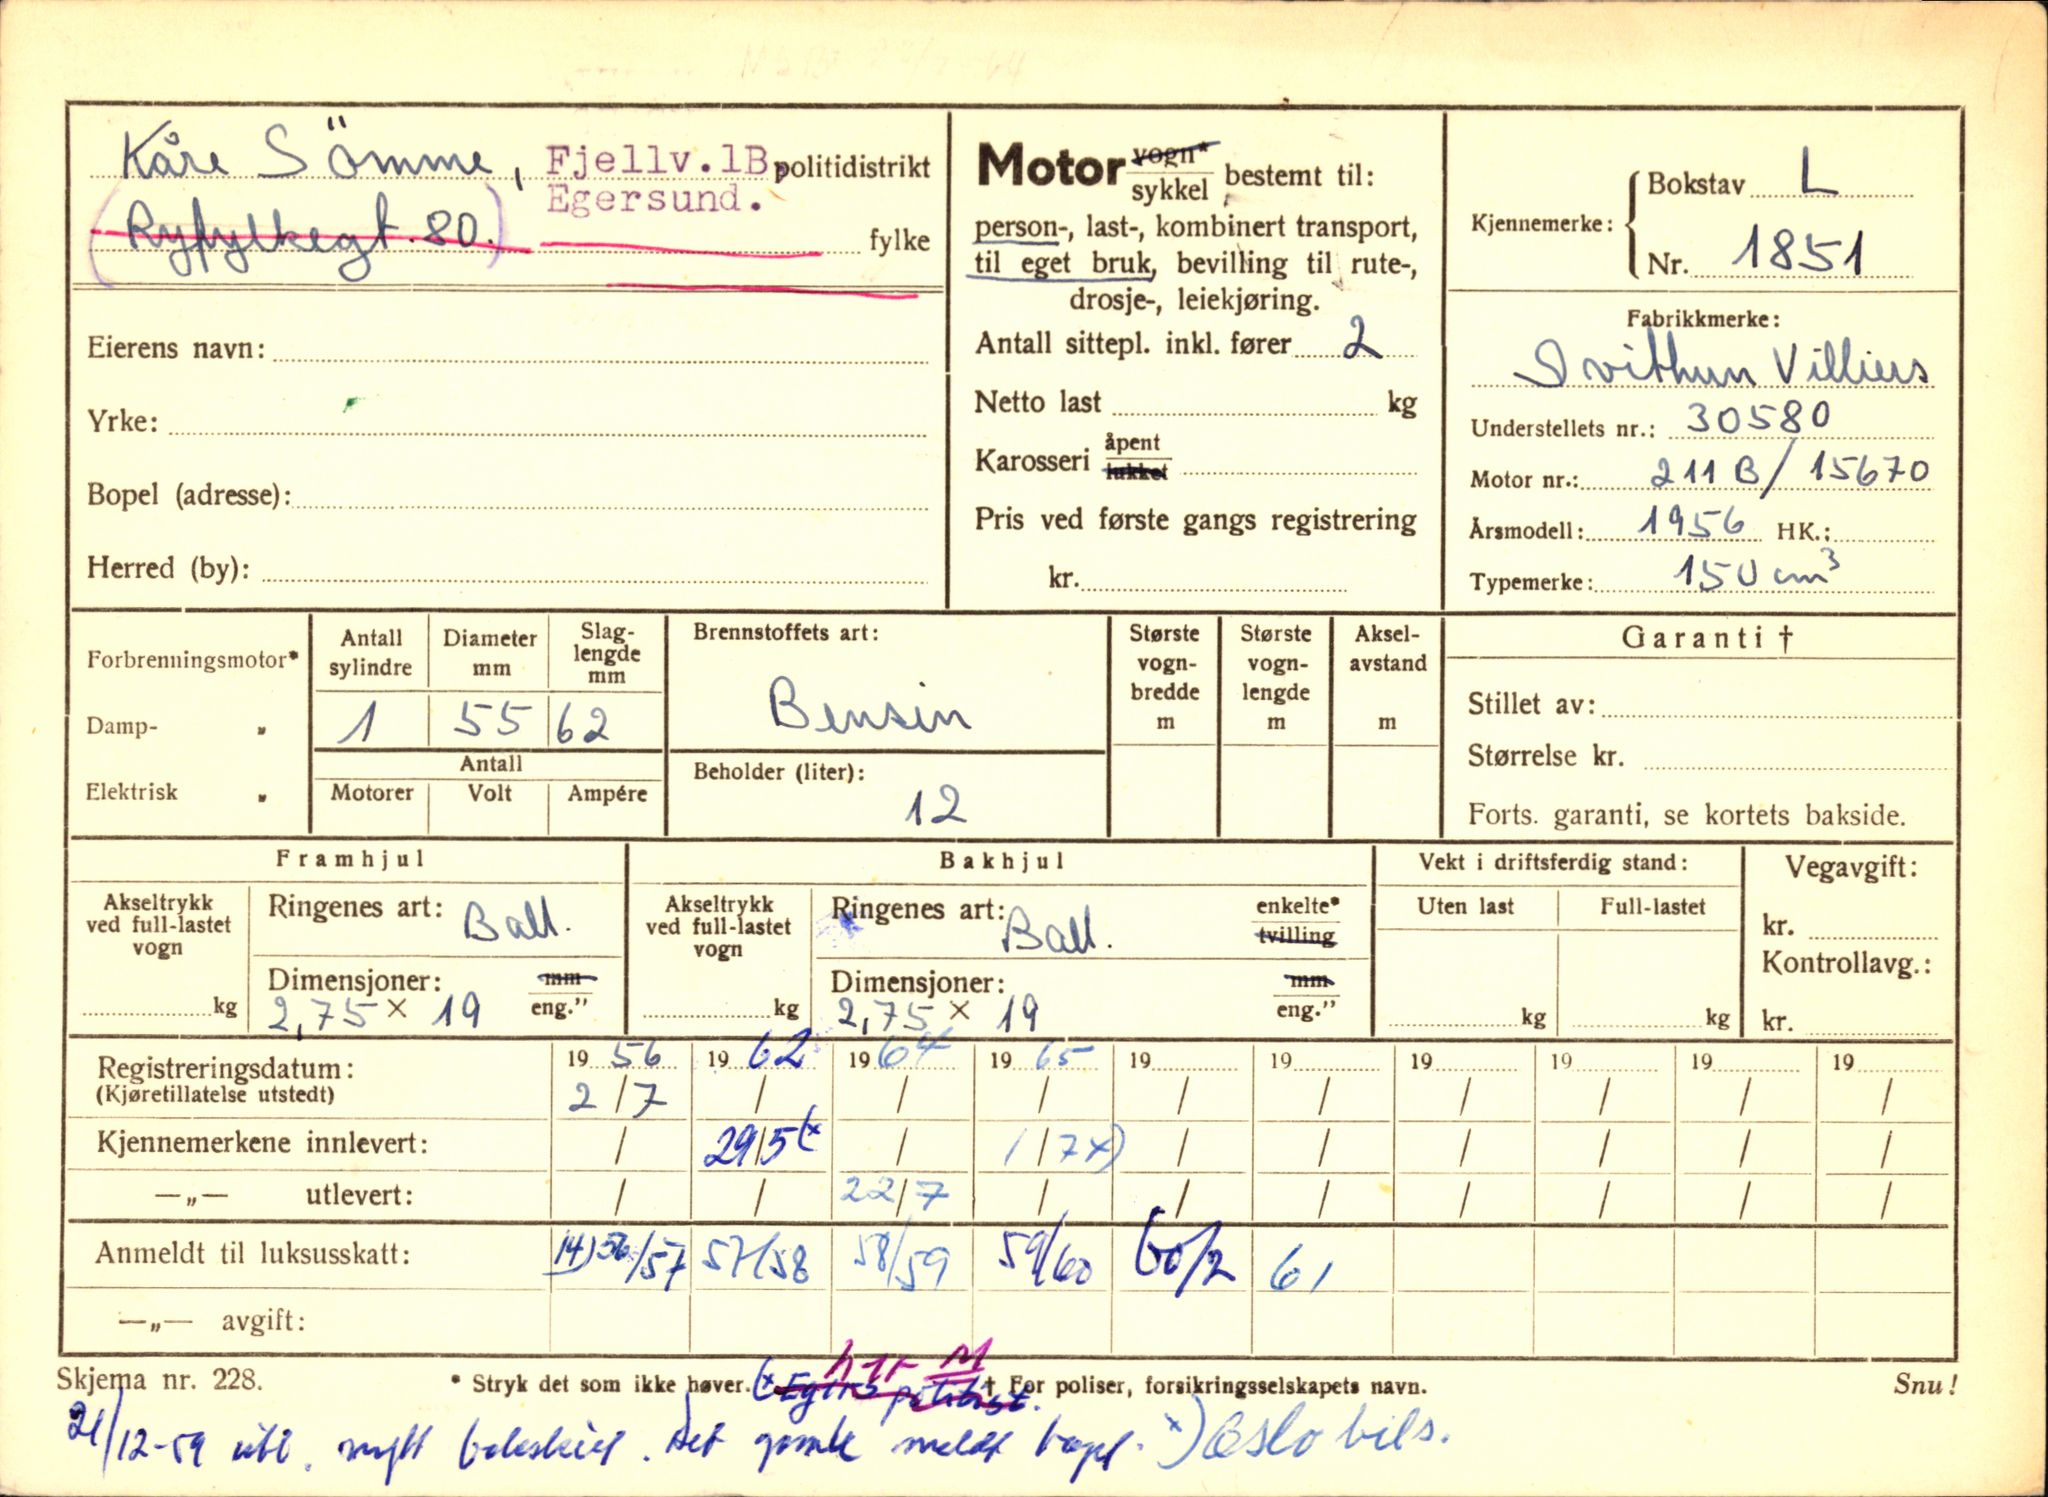 Kåre Sömme, Fjellv.1B, politidistrikt
Egersund.
(Ryfylkegt. 80.) fylke
Eierens navn:
Yrke:
Bopel (adresse):
Herred (by):
Motor vogn* sykkel bestemt til:
person-, last-, kombinert transport,
til eget bruk, bevilling til rute-,
drosje-, leiekjøring.
Antall sittepl. inkl. fører 2
Netto last kg
Karosseri åpent lukket
Pris ved første gangs registrering
kr.
Kjennemerke: Bokstav L
Nr. 1851
Fabrikkmerke:
Svithun Villiers
Understellets nr.: 30580
Motor nr.: 211 B/15670
Årsmodell: 1956 HK.:
Typemerke: 150 cm³
Forbrenningsmotor*
Damp- „
Elektrisk „
Antall sylindre 1
Diameter mm 55
Slag-lengde mm 62
Antall
Motorer Volt Ampére
Brennstoffets art:
Bensin
Beholder (liter):
12
Største vogn-bredde m
Største vogn-lengde m
Aksel-avstand m
Garanti †
Stillet av:
Størrelse kr.
Forts. garanti, se kortets bakside.
Framhjul
Akseltrykk ved full-lastet vogn
kg
Ringenes art: Ball.
Dimensjoner: mm eng."
2,75 × 19
Bakhjul
Akseltrykk ved full-lastet vogn
kg
Ringenes art: Ball. enkelte* tvilling
Dimensjoner: mm eng."
2,75 × 19
Vekt i driftsferdig stand:
Uten last Full-lastet
kg kg
Vegavgift:
kr.
Kontrollavg.:
kr.
Registreringsdatum: 19 56 19 62 19 64 19 65 19 19 19 19 19 19
(Kjøretillatelse utstedt) 2/7 / / / / / / / / /
Kjennemerkene innlevert: / 29/5 (x / 1/7 x) / / / / / /
—„— utlevert: / / 22/7 / / / / / / /
Anmeldt til luksusskatt: 14) 56/57 57/58 58/59 59/60 60/2 61
—„— avgift:
Skjema nr. 228. * Stryk det som ikke høver. (x † For poliser, forsikringsselskapets navn. Snu!
21/12-59 utl. nytt . Det gamle meldt tapt. x) Oslo bils.